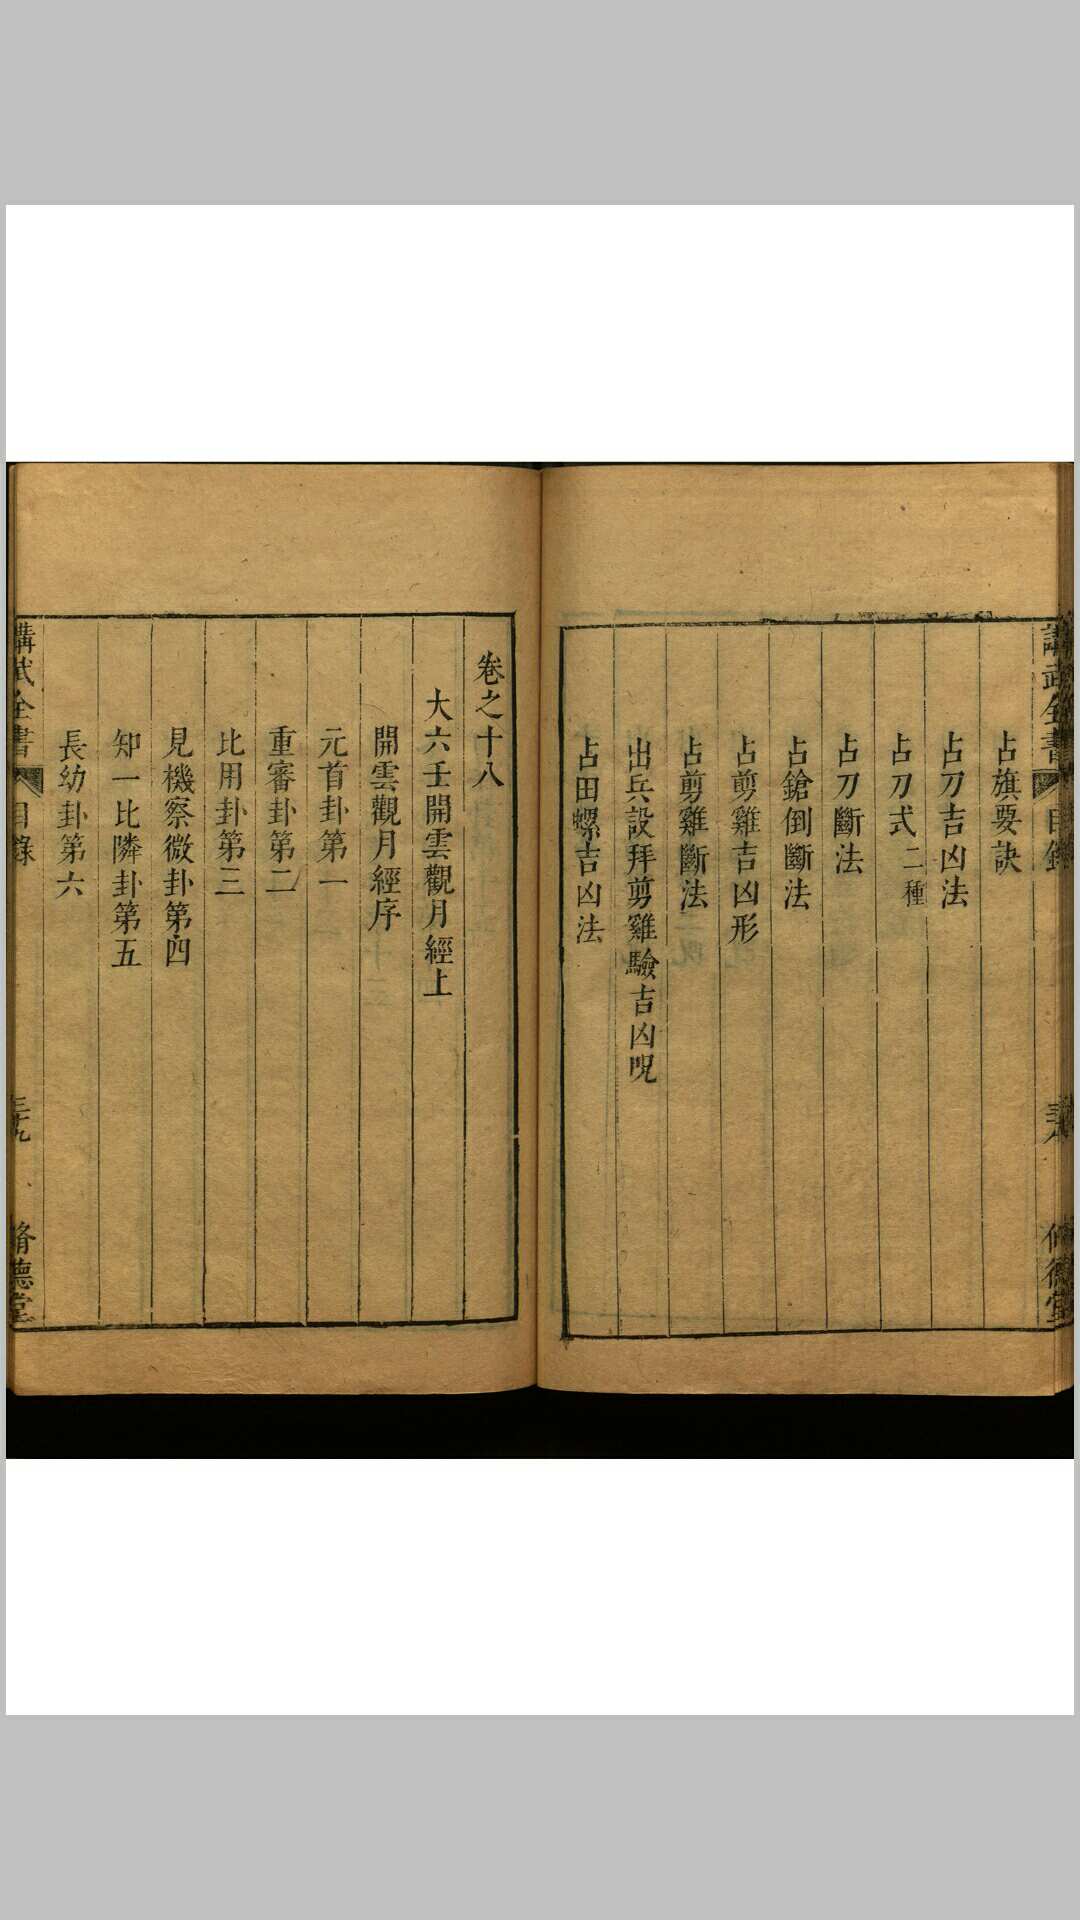 講武全書 目錄 三十八 脩德堂
占旗要訣
占刀吉凶法
占刀式二種
占刀斷法
占鎗倒斷法
占剪雞吉凶形
占剪雞斷法
出兵設拜剪雞驗吉凶呪
占田螺吉凶法
卷之十八
大六壬開雲觀月經上
開雲觀月經序
元首卦第一
重審卦第二
比用卦第三
見機察微卦第四
知一比隣卦第五
長幼卦第六
講武全書 目錄 三十九 脩德堂